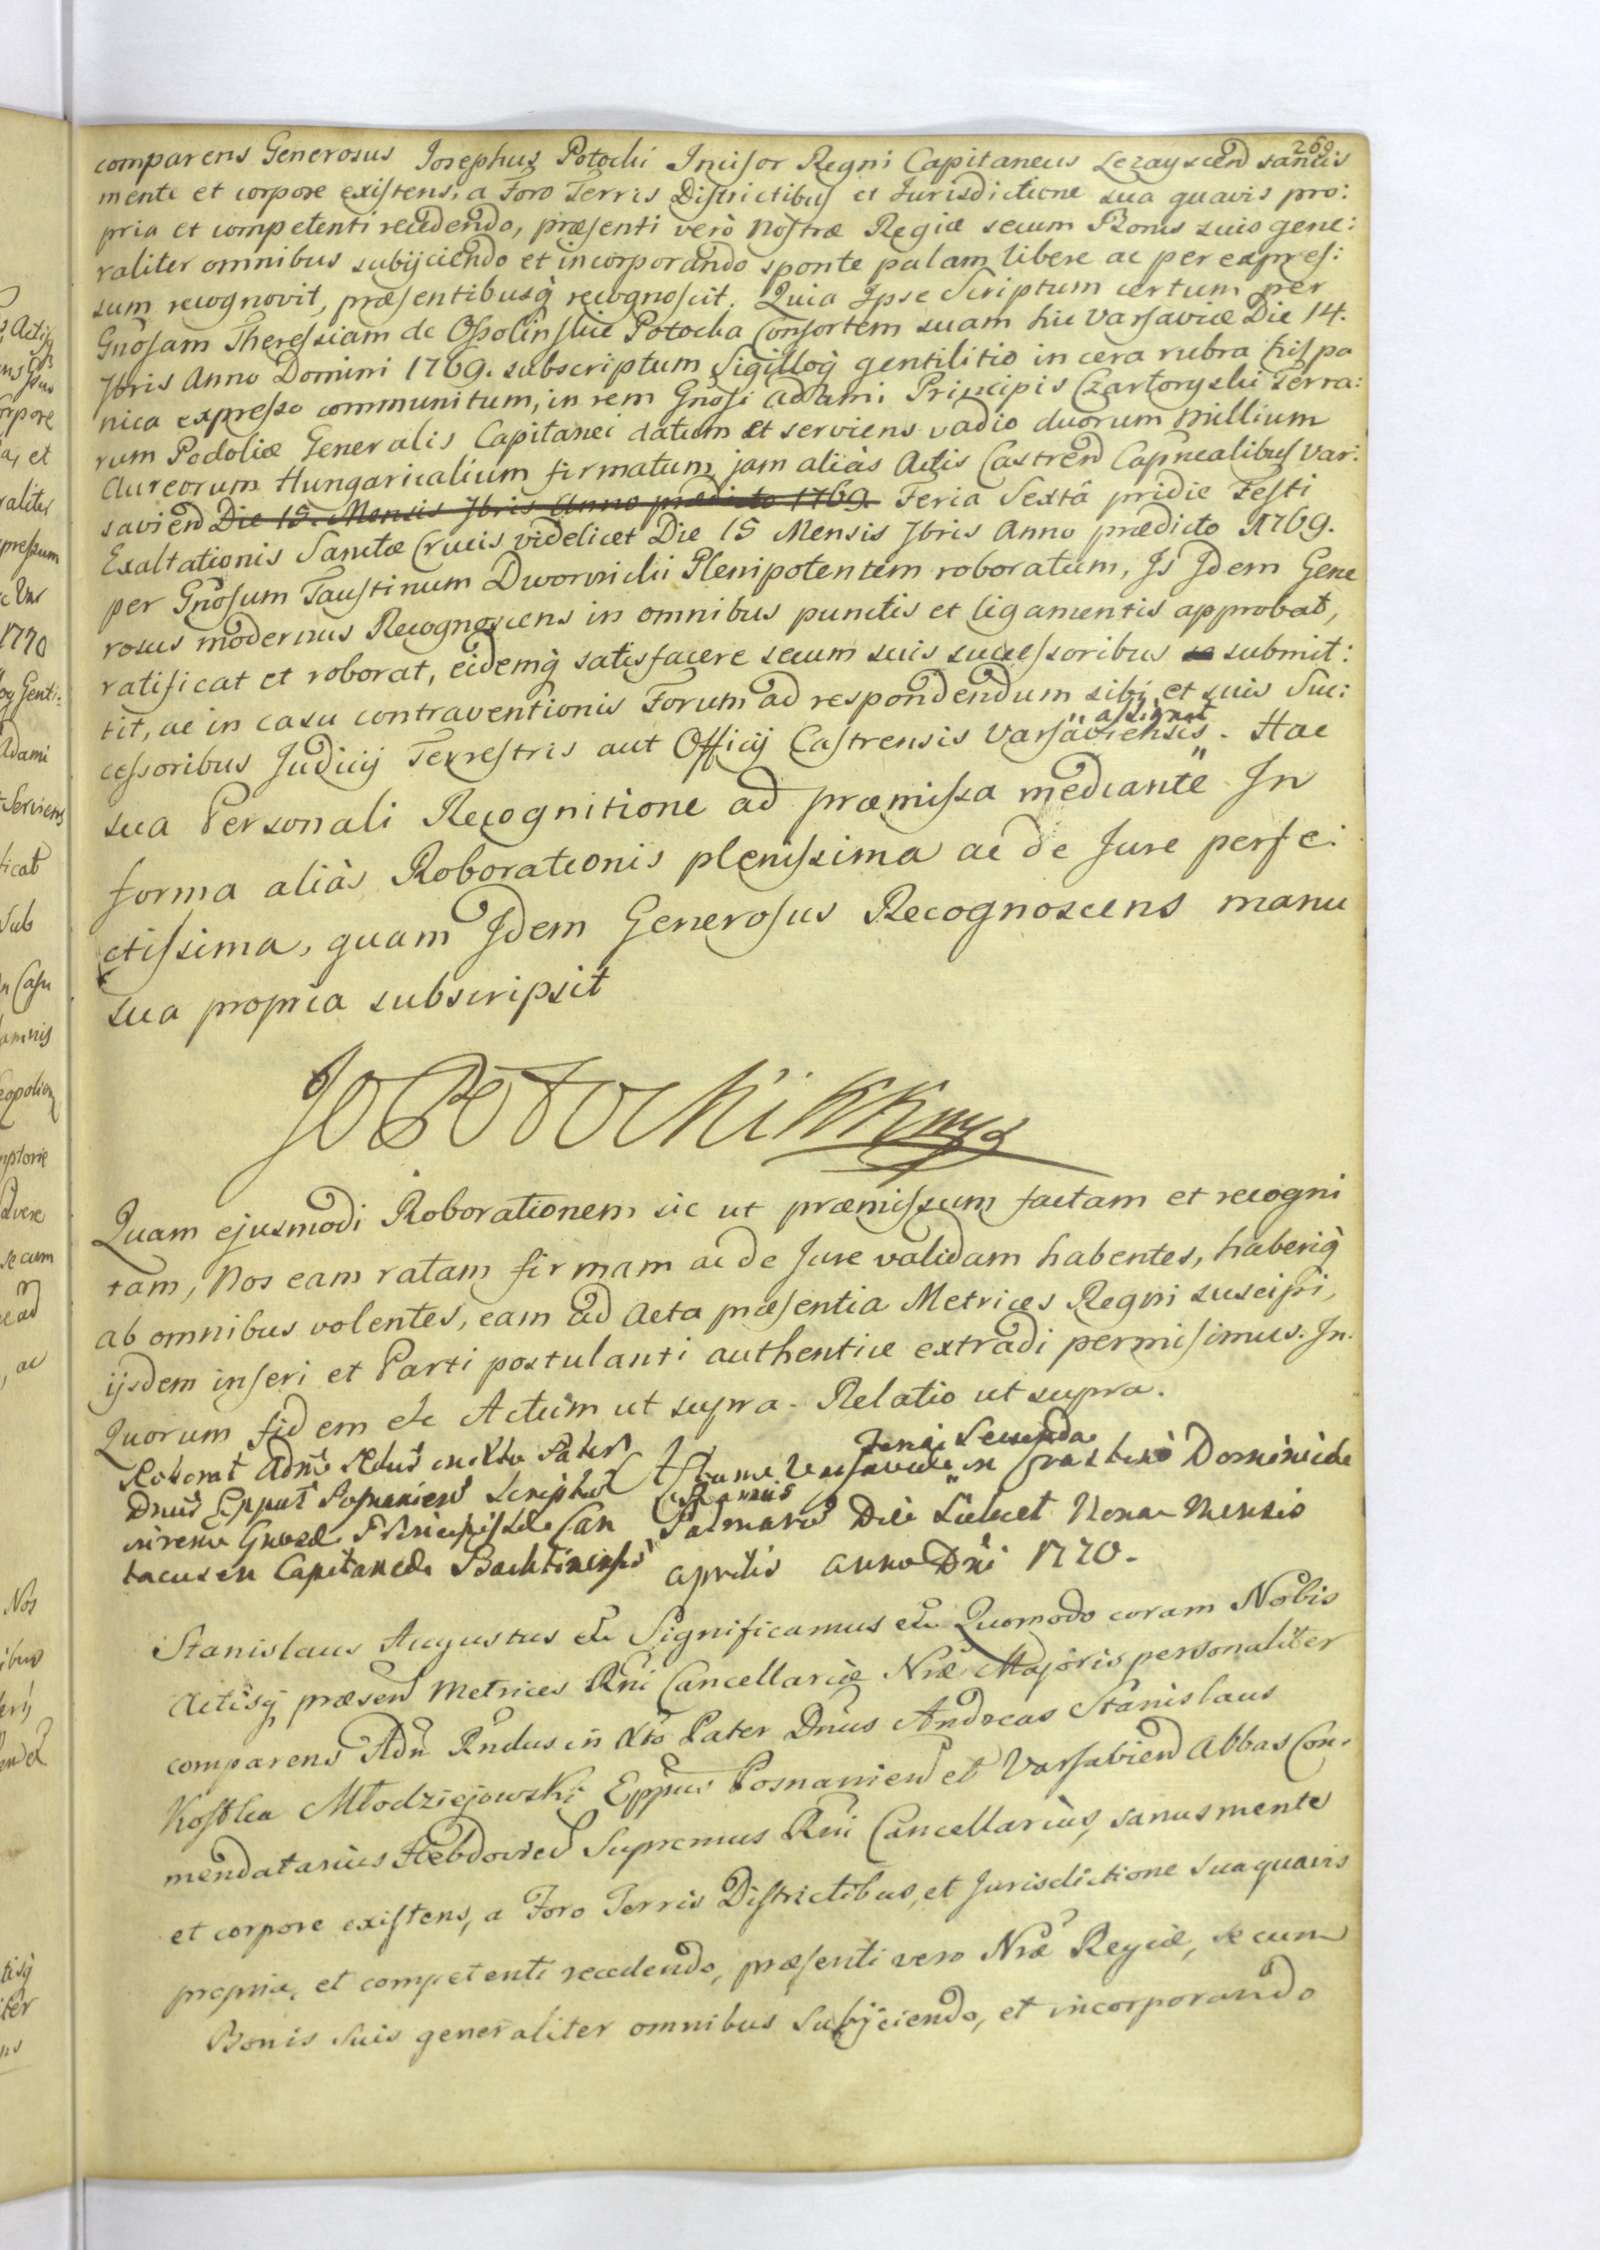 269.
comparens Generosus Josephus Potocki Incisor Regni Capitaneus Lezayscen̄ sanus
mente et corpore existens, a Foro Terris Districtibus et Jurisdictione sua quavis pro:
pria et competenti recedendo, præsenti verò Nostræ Regiæ secum Bonis suis gene:
raliter omnibus subijciendo et incorporando sponte palam libere ac per expres:
sum recognovit, præsentibusq̀ recognoscit. Quia Ipse Scriptum certum per
Gnosam Theressiam de Ossolinskie Potocka Consortem suam hic Varsaviæ Die 14.
7bris Anno Domini 1769. subscriptum Sigilloq̀ gentilitio in cera rubra hispa
nica expresso communitum, in rem Gnosi Adami Principis Czartoryski Terra:
rum Podoliæ Generalis Capitanei datum et serviens vadio duorum millium
Aureorum Hungaricalium firmatum jam aliàs Actis Castren̄ Capnealibus Var:
savien̄ Die 15. Mensis 7bris Anno prædicto 1769. Feria Sextâ pridie Festi
Exaltationis Sanctæ Crucis videlicet Die 15 Mensis 7bris Anno prædicto 1769.
per Gnosum Faustinum Dwornicki Plenipotentem roboratum, Is Idem Gene
rosus modernus Recognoscens in omnibus punctis et ligamentis approbat,
ratificat et roborat, eidemq̀ satisfacere secum suis successoribus submit:
tit, ac in casu contraventionis Forum ad respondendum sibi et suis Suc:
cessoribus Judicij Terrestris aut Officij Castrensis Varsaviensis assignat. Hac
sua Personali Recognitione ad præmissa mediante In
forma aliàs Roborationis plenissima ac de Jure perfe:
ctissima, quam Idem Generosus Recognoscens manu
sua propria subscripsit
Jo Potocki KK mp
Quam ejusmodi Roborationem sic ut præmissum factam et recogni
tam, Nos eam ratam firmam ac de Jure validam habentes, haberiq̀
ab omnibus volentes, eam ad Acta præsentia Metrices Regni suscipi,
ijsdem inseri et Parti postulanti authentice extradi permisimus. In
Quorum fidem etc Actum ut supra. Relatio ut supra.
Roborat Adm̄ Rdus in Xto Pater
Dnus Eppus Posnanien̄ Scriptum
in rem Gnosæ Principissæ San
Capitaneæ
Feria Secunda
Actum Varsaviæ in Crastino Dominicæ
Ramis
Palmarum Die Scilicet Nona Mensis
Aprilis Anno Dni 1770.
Stanislaus Augustus etc Significamus etc Quomodo coram Nobis
Actisq̀ præsen̄ Metrices Rni Cancellariæ Nræ Majoris personaliter
comparens Adm̄ Rndus in Xto Pater Dnus Andreas Stanislaus
Kostka Młodziejowski Eppus Posnanien̄ et Varsavien̄ Abbas Com:
mendatarius Hebdovien̄ Supremus Rni Cancellarius, sanus mente
et corpore existens, a Foro Terris Districtibus, et Jurisdictione sua quavis
propria, et competenti recedendo, præsenti vero Nræ Regiæ, se cum
Bonis suis generaliter omnibus subijciendo, et incorporando